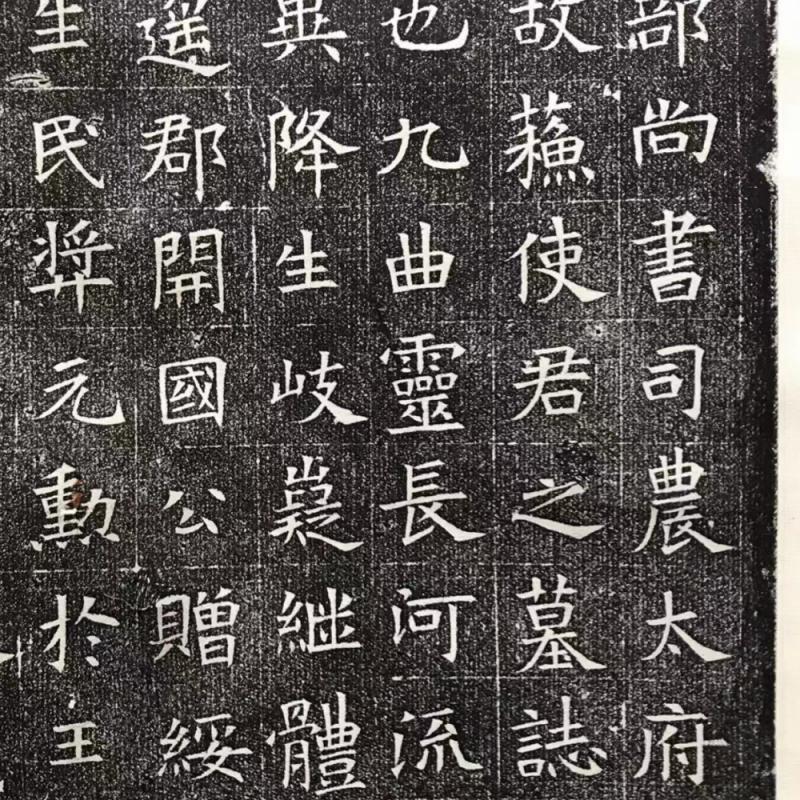 部尚書司農太府
故蘓使君之墓誌
也九曲靈長河流
異降生岐嶷継體
遥郡開國公贈綏
生民奬元勳於王